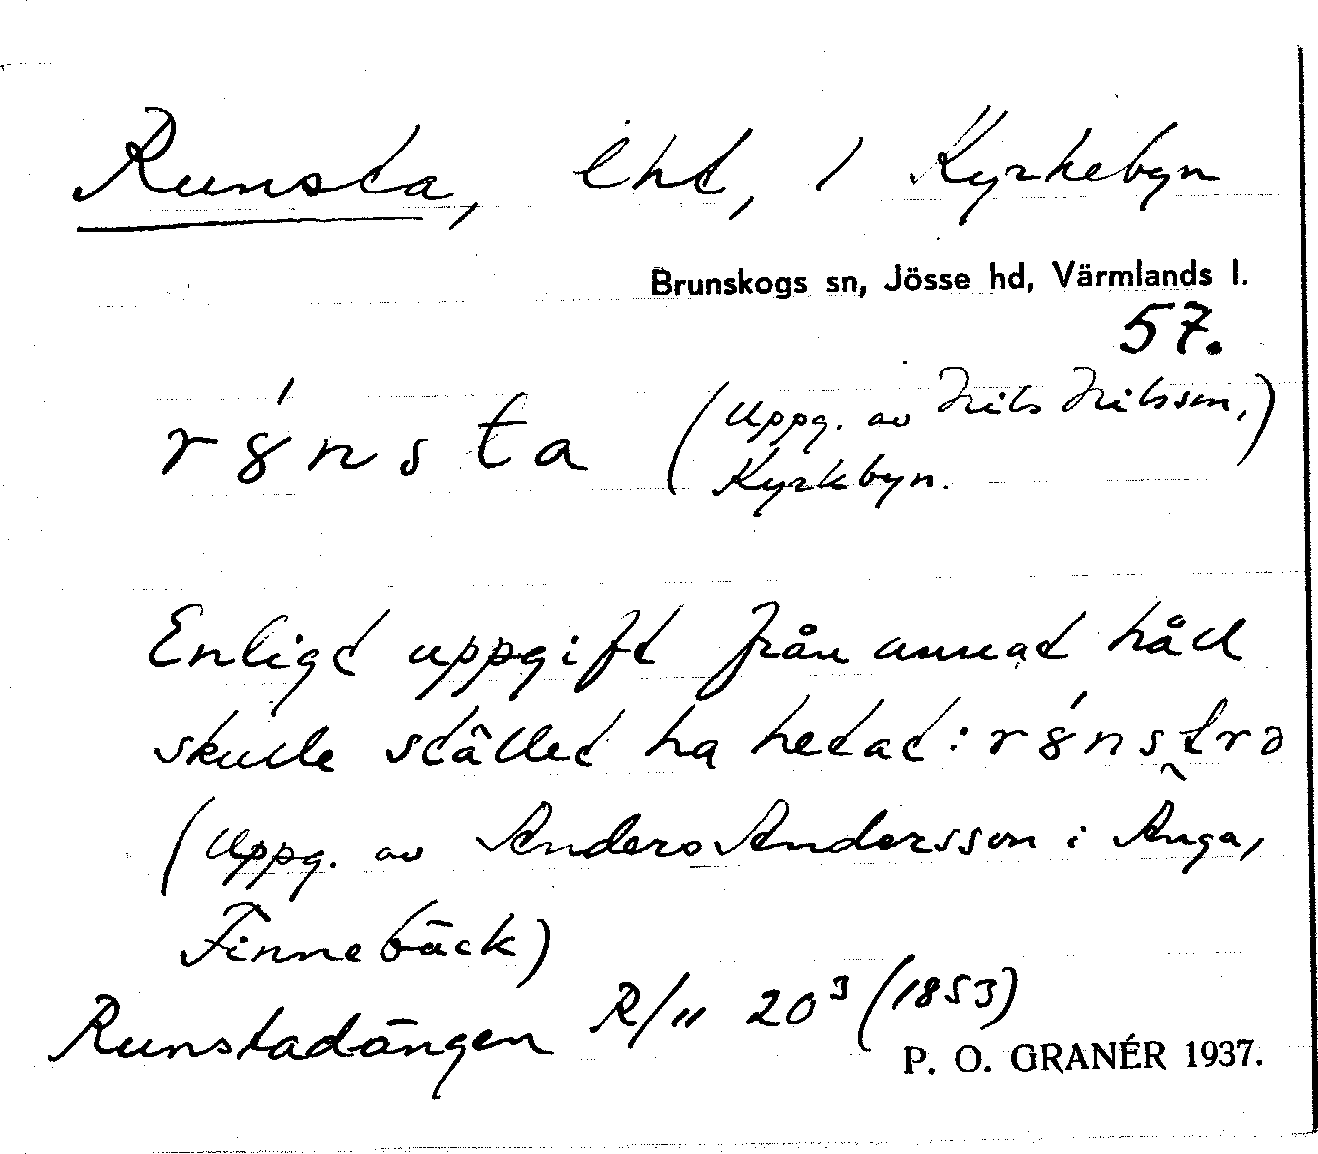 Runsta, lht, i Kyrkebyn
Brunskogs sn, Jösse hd, Värmlands l.
57.
r8́nsta (Uppg. av Nils Nilsson,)
Kyrkbyn.
Enligt uppgift från annat håll
skulle stället ha hetat: r8́nstra
(Uppg. av Anders Andersson i Änga,
Finnebäck)
Runstadängen R/11 20³ (1853)
P. O. GRANÉR 1937.